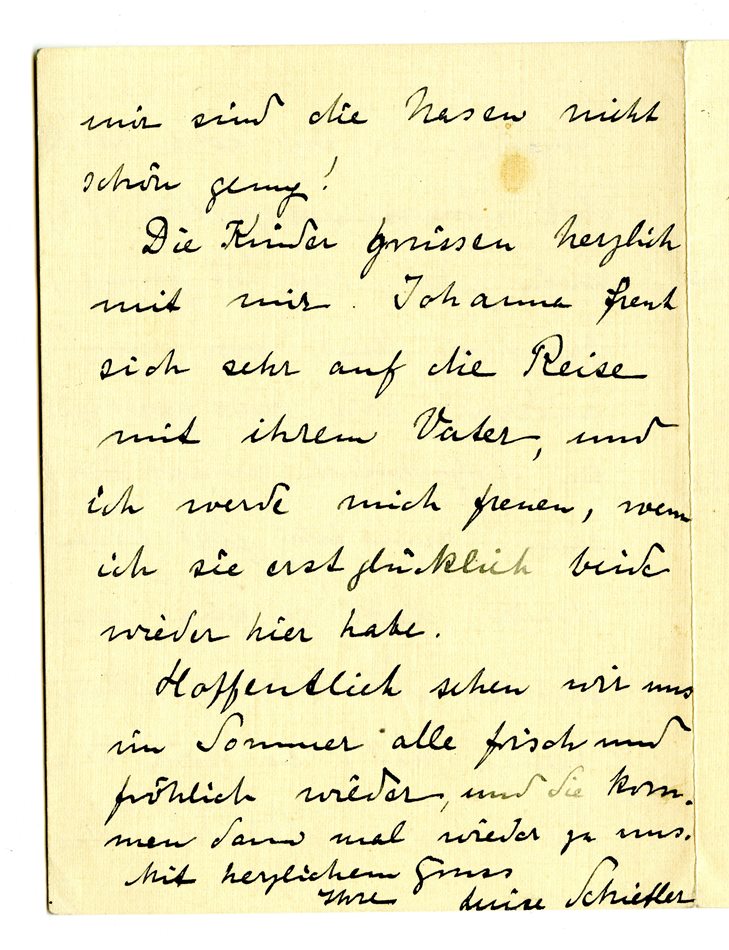 mir sind die Nasen nicht
schön genug!
Die Kinder grüssen herzlich
mit mir. Johanna freut
sich sehr auf die Reise
mit ihrem Vater, und
ich werde mich freuen, wenn
ich sie erst glücklich beide
wieder hier habe.
Hoffentlich sehen wir uns
im Sommer alle frisch und
fröhlich wieder, und Sie kom-
men dann mal wieder zu uns.
Mit herzlichem Gruss
Ihre Luise Schiefler